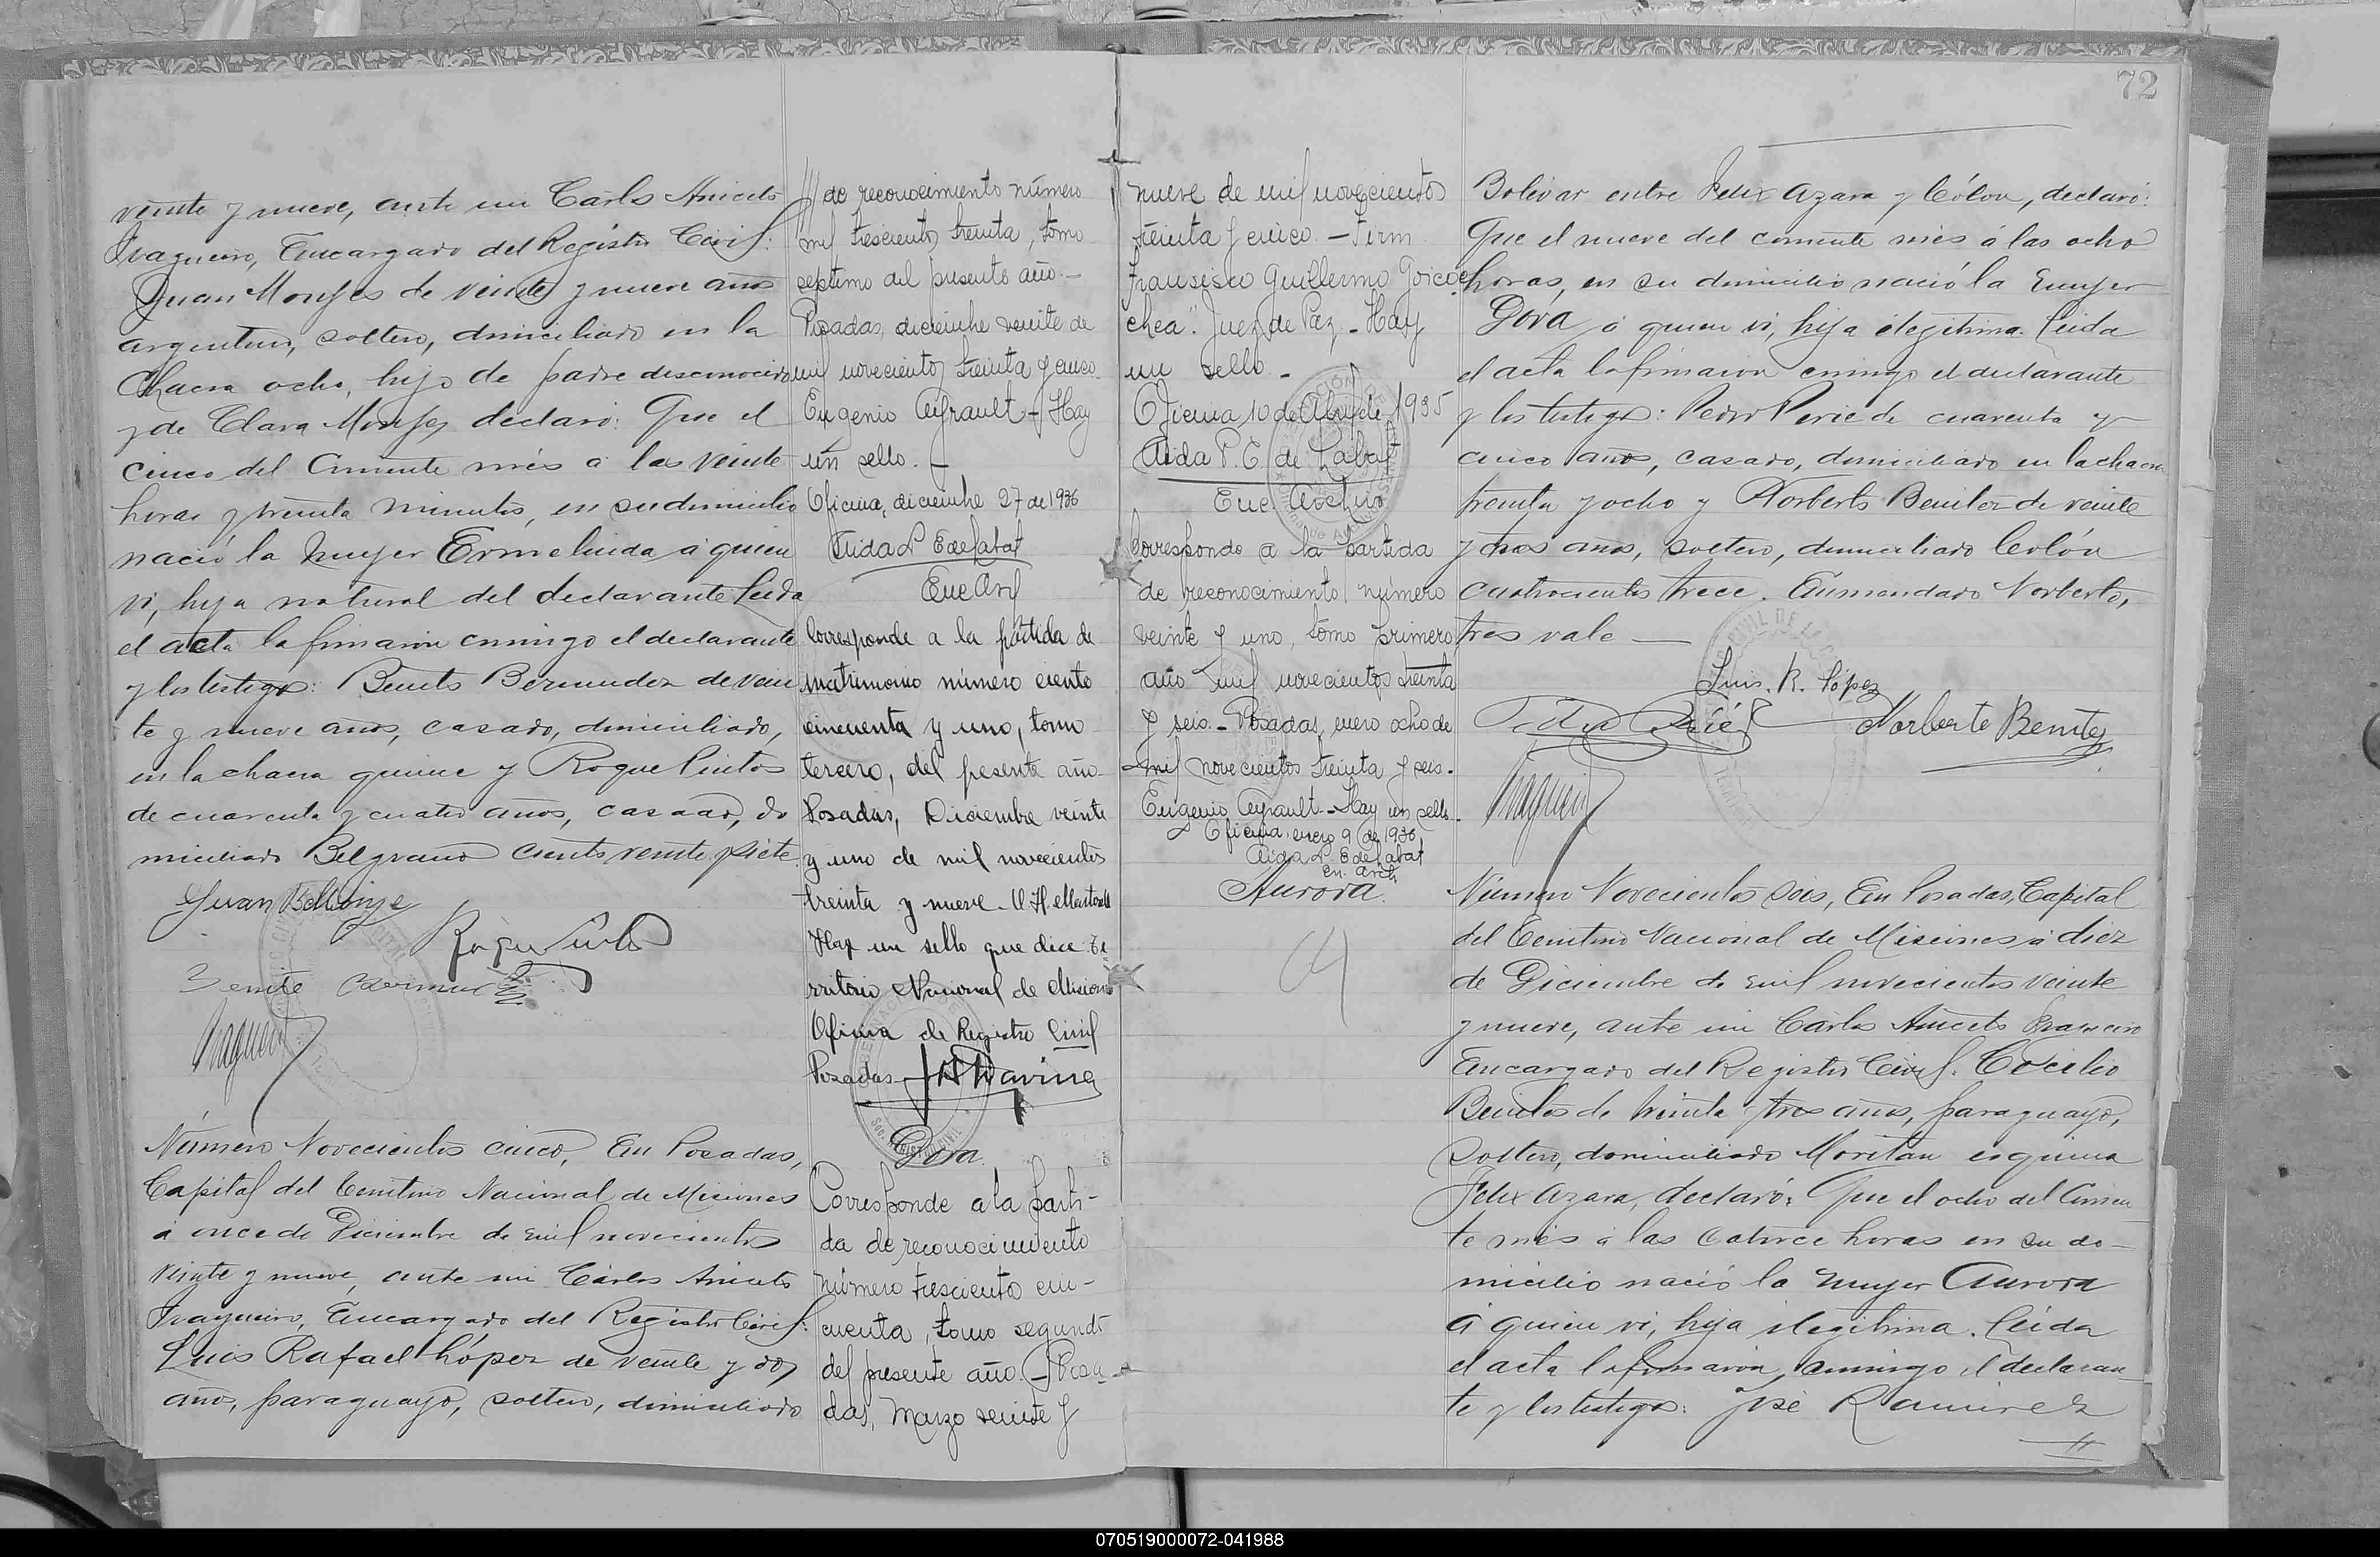 veinte y nueve, ante mi Carlos Aniceto
Fragueiro, Encargado del Registro Civil:
Juan Monjes de veinte y nueve años
argentino, soltero, domiciliado en la
Chacra ocho, hijo de padre desconocido
y de Clara Monjes declaró: Que el
cinco del corriente més á las veinte
horas y treinta minutos, en su domicilio
nació la mujer Ermelinda á quien
vi, hija natural del declarante. Leida
el acta la firmaron conmigo el declarante
y los testigos: Benito Bermudez de vein
te y nueve años, casado, domiciliado,
en la chacra quince y Roque Pintos
de cuarenta y cuatro años, casado, do
miciliado Belgrano ciento veinte y siete
Juan B Monje
Roque Pinto
Benito Bermudez
Fragueiro
Número Novecientos cinco, En Posadas,
Capital del Territorio Nacional de Misiones
á once de Diciembre de mil novecientos
veinte y nueve, ante mi Cárlos Aniceto
Fragueiro, Encargado del Registro Civil:
Luis Rafael López de veinte y dos
años, paraguayo, soltero, domiciliado
/// de reconocimiento número
mil trescientos treinta, tomo
septimo del presente año.—
Posadas, diciembre veinte de
mil novecientos treinta y cinco.
Eugenio Ayrault - Hay
un sello. —
Oficina, diciembre 27 de 1936
Aida P. E de Labat
Enc Arch
Corresponde a la partida de
matrimonio número ciento
cincuenta y uno, tomo
tercero, del presente año.
Posadas, Diciembre veinte
y uno de mil novecientos
treinta y nueve.
Hay un sello que dice Te
rritorio Nacional de Misiones
Oficina de Registro Civil
Posadas
Dora.
Corresponde a la parti-
da de reconocimiento
número trescientos cin-
cuenta, tomo segundo
del presente año.- Posa-
das, Marzo veinte y
nueve de mil novecientos
treinta y cinco. - Firm
Francisco Guillermo Goicoe
chea". Juez de Paz. - Hay
un sello. -
Oficina 10 de Abril de 1935
Aida P. E. de Labat
Enc. Archivo
Corresponde a la partida
de reconocimiento número
veinte y uno, tomo primero
año mil novecientos treinta
y seis. - Posadas, enero ocho de
mil novecientos treinta y seis.
Eugenio Ayrault - Hay un sello.
Oficina, enero 9 de 1936,
Aida P. E de Labat
En. Arch
Aurora.
72
Bolivar entre Felix Azara y Cólon, declaró:
Que el nueve del corriente més á las ocho
horas, en su domicilio nació la mujer
Dora á quien vi, hija ilegitima. Leida
el acta la firmaron conmigo el declarante
y los testigos: Pedro Perié de cuarenta y
cinco años, casado, domiciliado en la chacra
treinta y ocho y Norberto Benitez de veinte
y tres años, soltero, domiciliado Colón
cuatrocientos trece. Enmendado Norberto,
tres vale —
Luis. R. López
Pedro Perié
Norberto Benitez
Fragueiro
Número Novecientos seis, En Posadas, Capital
del Territorio Nacional de Misiones á diez
de Diciembre de mil novecientos veinte
y nueve, ante mi Cárlos Aniceto Fragueiro
Encargado del Registro Civil: Cecilio
Benitez de treinta y tres años, paraguayo,
soltero, domiciliado Moritan esquina
Felix Azara, declaró: Que el ocho del corrien
te més á las catorce horas en su do-
micilio nació la mujer Aurora
á quien vi, hija ilegitima. Leida
el acta la firmaron, conmigo el declaran
te y los testigos: José Ramirez
070519000072-041988